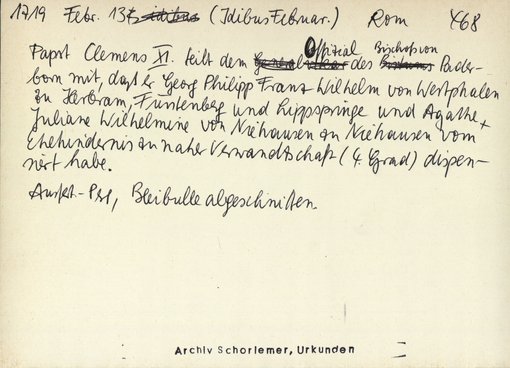 1719 Febr. 13 (Idibus Februar.) Rom 468
Papst Clemens XI. teilt dem Offizial des Bischofs von Pader-
born mit, daß er Georg Philipp Franz Wilhelm von Westphalen
zu Herbram, Fürstenberg und Lippspringe und Agathe
Juliane Wilhelmine von Niehausen zu Niehausen vom
Ehehindernis zu naher Verwandtschaft (4. Grad) dispen-
siert habe.
Ausfert.-Perg., Bleibulle abgeschnitten.
Archiv Schorlemer, Urkunden